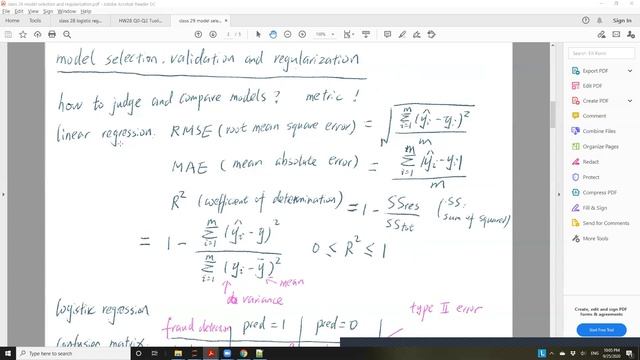 class 29 model selection and regularization.pdf - Adobe Acrobat Reader DC
class 28 logistic regr...
HW28 Q0-Q2 Tuto...
class 29 model sele...
model selection, validation and regularization
how to judge and compare models? metric!
linear regression. RMSE (root mean square error) = √(Σ_{i=1}^{m} (ŷi - yi)² / m)
MAE (mean absolute error) = Σ_{i=1}^{m} |ŷi - yi| / m
R² (coefficient of determination) = 1 - SSres / SStot (SS: sum of squared)
= 1 - Σ_{i=1}^{m} (ŷi - y)² / Σ_{i=1}^{m} (yi - ȳ)² 0 ≤ R² ≤ 1
mean
variance
logistic regression
type II error
fraud detection pred = 1 pred = 0
confusion matrix
Export PDF
Edit PDF
Create PDF
Comment
Combine Files
Organize Pages
Redact
Protect
Compress PDF
Fill & Sign
Send for Comments
More Tools
Create, edit and sign PDF
forms & agreements
Start Free Trial
Type here to search
ENG
10:05 PM
9/25/2020